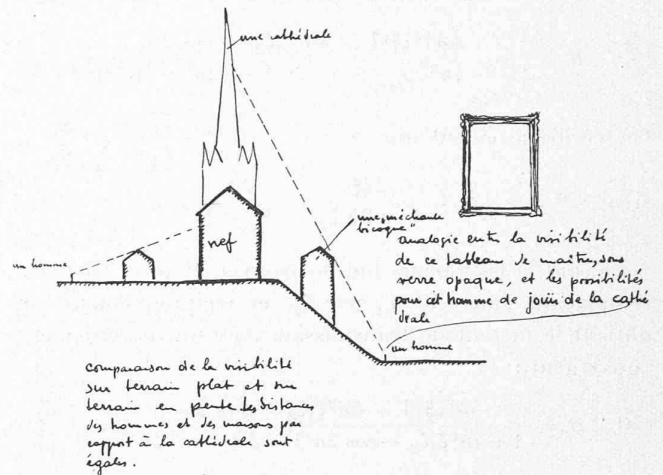 une cathédrale
une "méchante
bicoque"
nef
un homme
analogie entre la visibilité
de ce tableau de maître, sous
verre opaque, et les possibilités
pour cet homme de jouir de la cathé
drale
un homme
Comparaison de la visibilité
sur terrain plat et sur
terrain en pente. Les distances
des hommes et des maisons par
rapport à la cathédrale sont
égales.